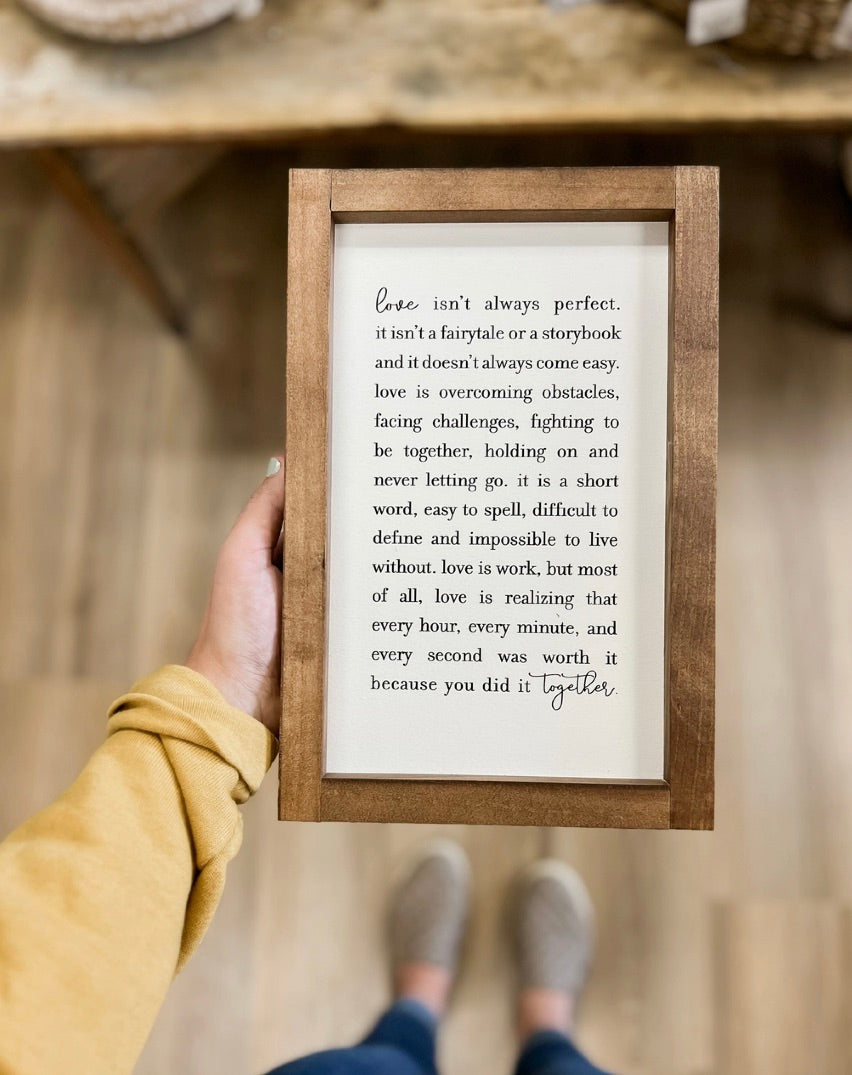 love isn't always perfect.
it isn't a fairytale or a storybook
and it doesn't always come easy.
love is overcoming obstacles,
facing challenges, fighting to
be together, holding on and
never letting go. it is a short
word, easy to spell, difficult to
define and impossible to live
without. love is work, but most
of all, love is realizing that
every hour, every minute, and
every second was worth it
because you did it together.